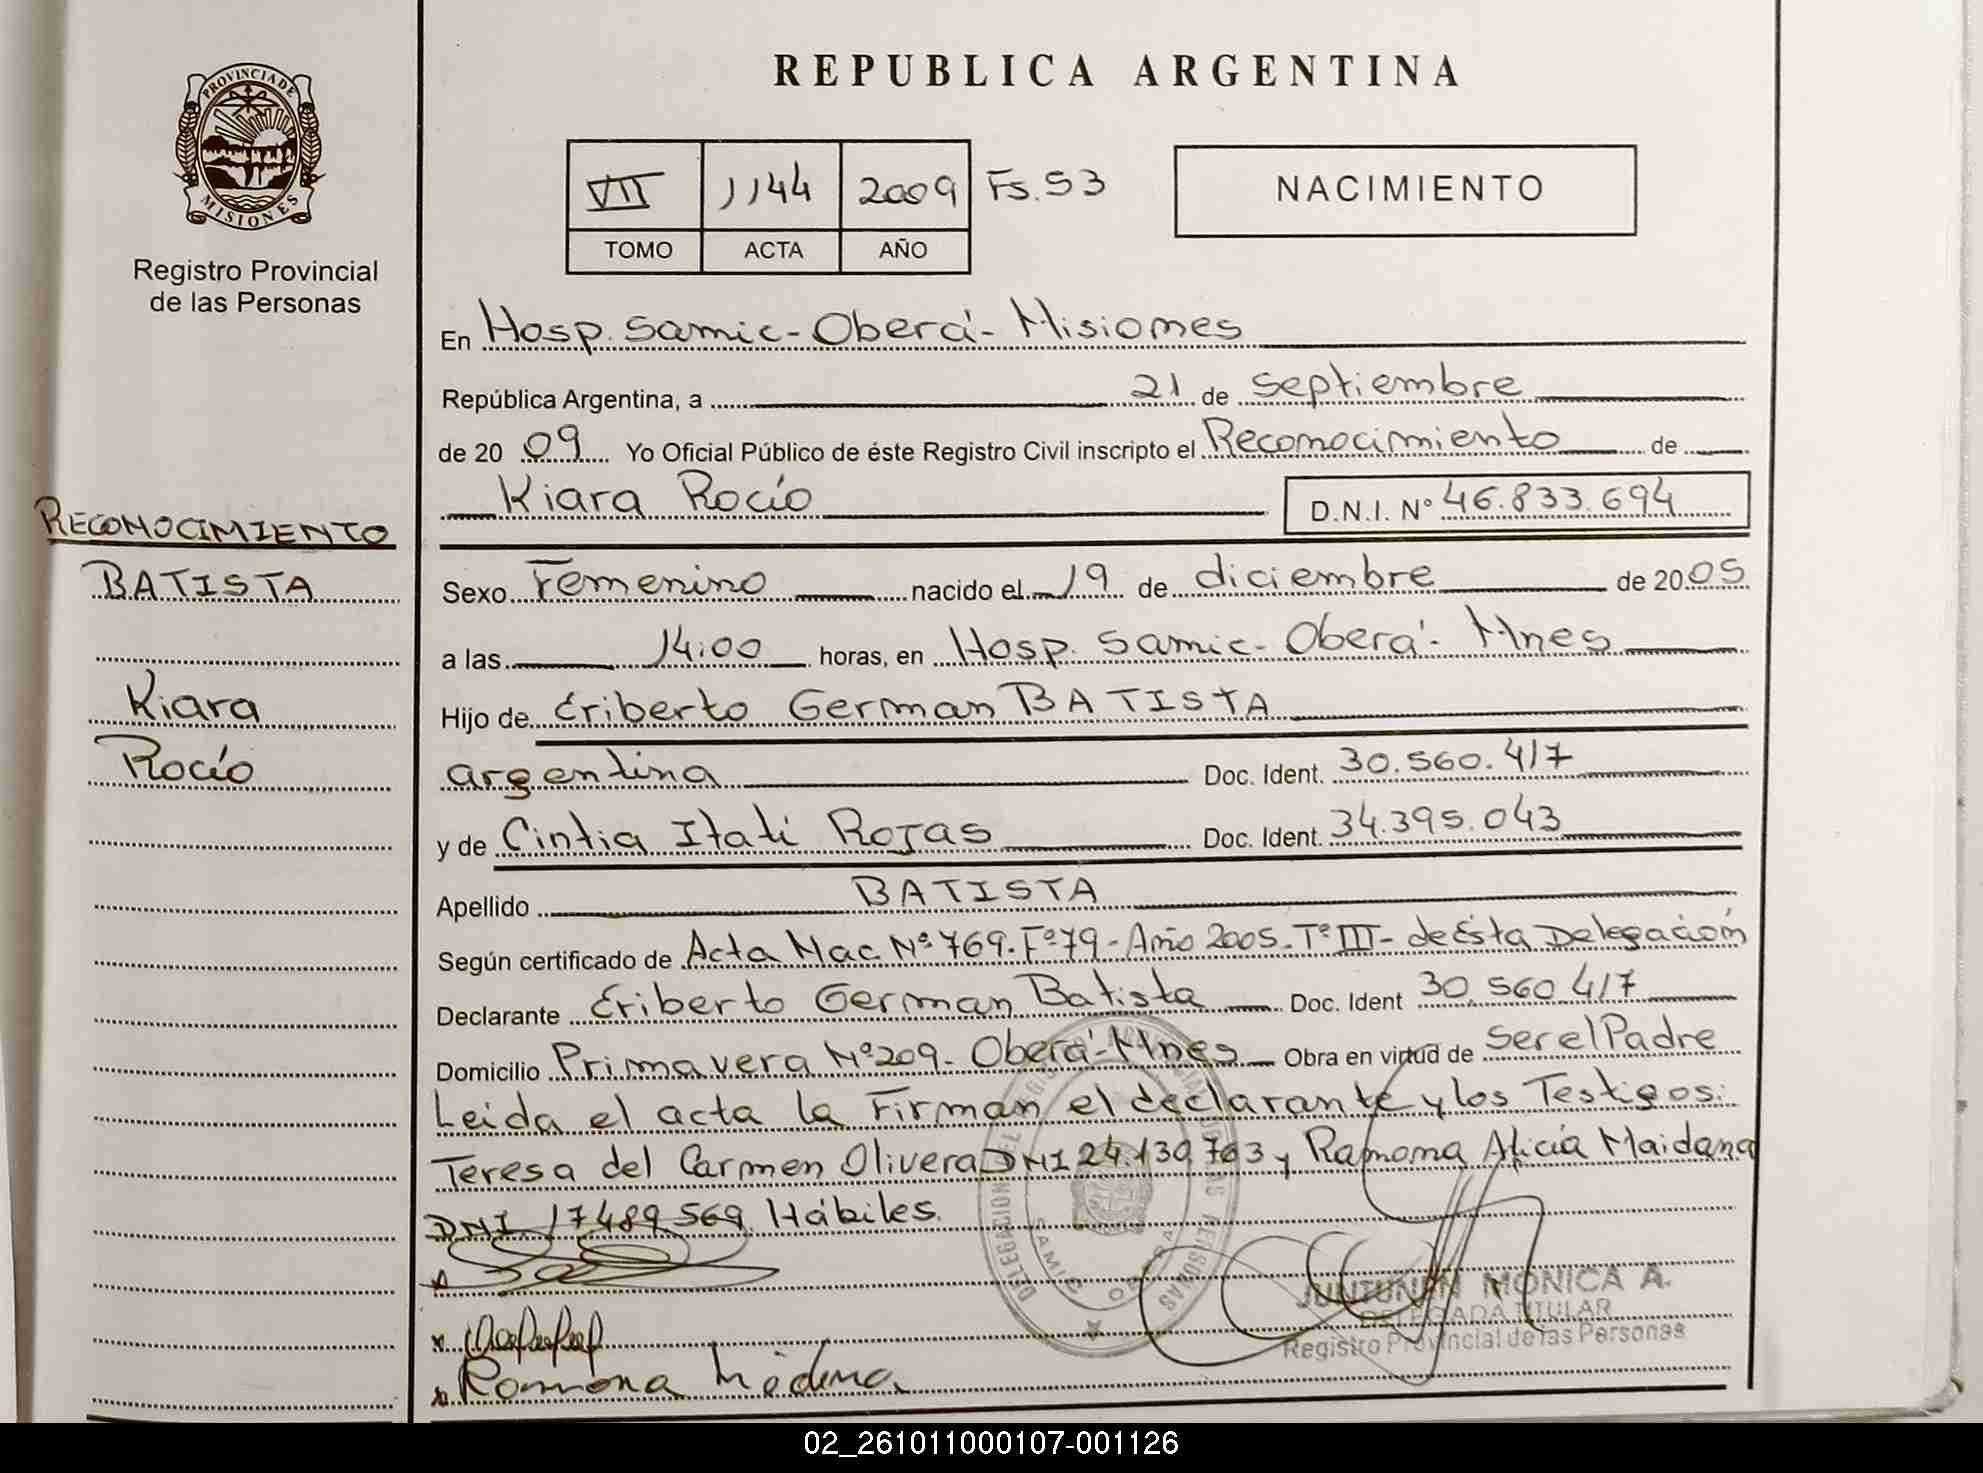 PROVINCIA DE
MISIONES
Registro Provincial
de las Personas
REPUBLICA ARGENTINA
VII 1144 2009 Fs. 53
TOMO ACTA AÑO
NACIMIENTO
En Hosp. Samic - Oberá - Misiones
República Argentina, a 21 de septiembre
de 20 09 Yo Oficial Público de éste Registro Civil inscripto el Reconocimiento de
Kiara Rocío D.N.I. Nº 46.833.694
RECONOCIMIENTO
BATISTA
Kiara
Rocío
Sexo Femenino nacido el 19 de diciembre de 20 05
a las 14:00 horas, en Hosp. Samic - Oberá - Mnes
Hijo de Eriberto German BATISTA
argentina Doc. Ident. 30.560.417
y de Cintia Itatí ROJAS Doc. Ident. 34.395.043
Apellido BATISTA
Según certificado de Acta Nac Nº 769 - Fº 79 - Año 2005 - Tº III - de Esta Delegación
Declarante Eriberto German Batista Doc. Ident 30.560 417
Domicilio Primavera Nº 209 - Oberá - Mnes Obra en virtud de ser el Padre
Leida el acta la Firman el declarante y los Testigos:
Teresa del Carmen Olivera DNI 24.130.763 y Ramona Alicia Maidana
DNI 17489569 Hábiles.
Ramona
JUNTUNEN MONICA A.
DELEGADA TITULAR
Registro Provincial de las Personas
02_261011000107-001126